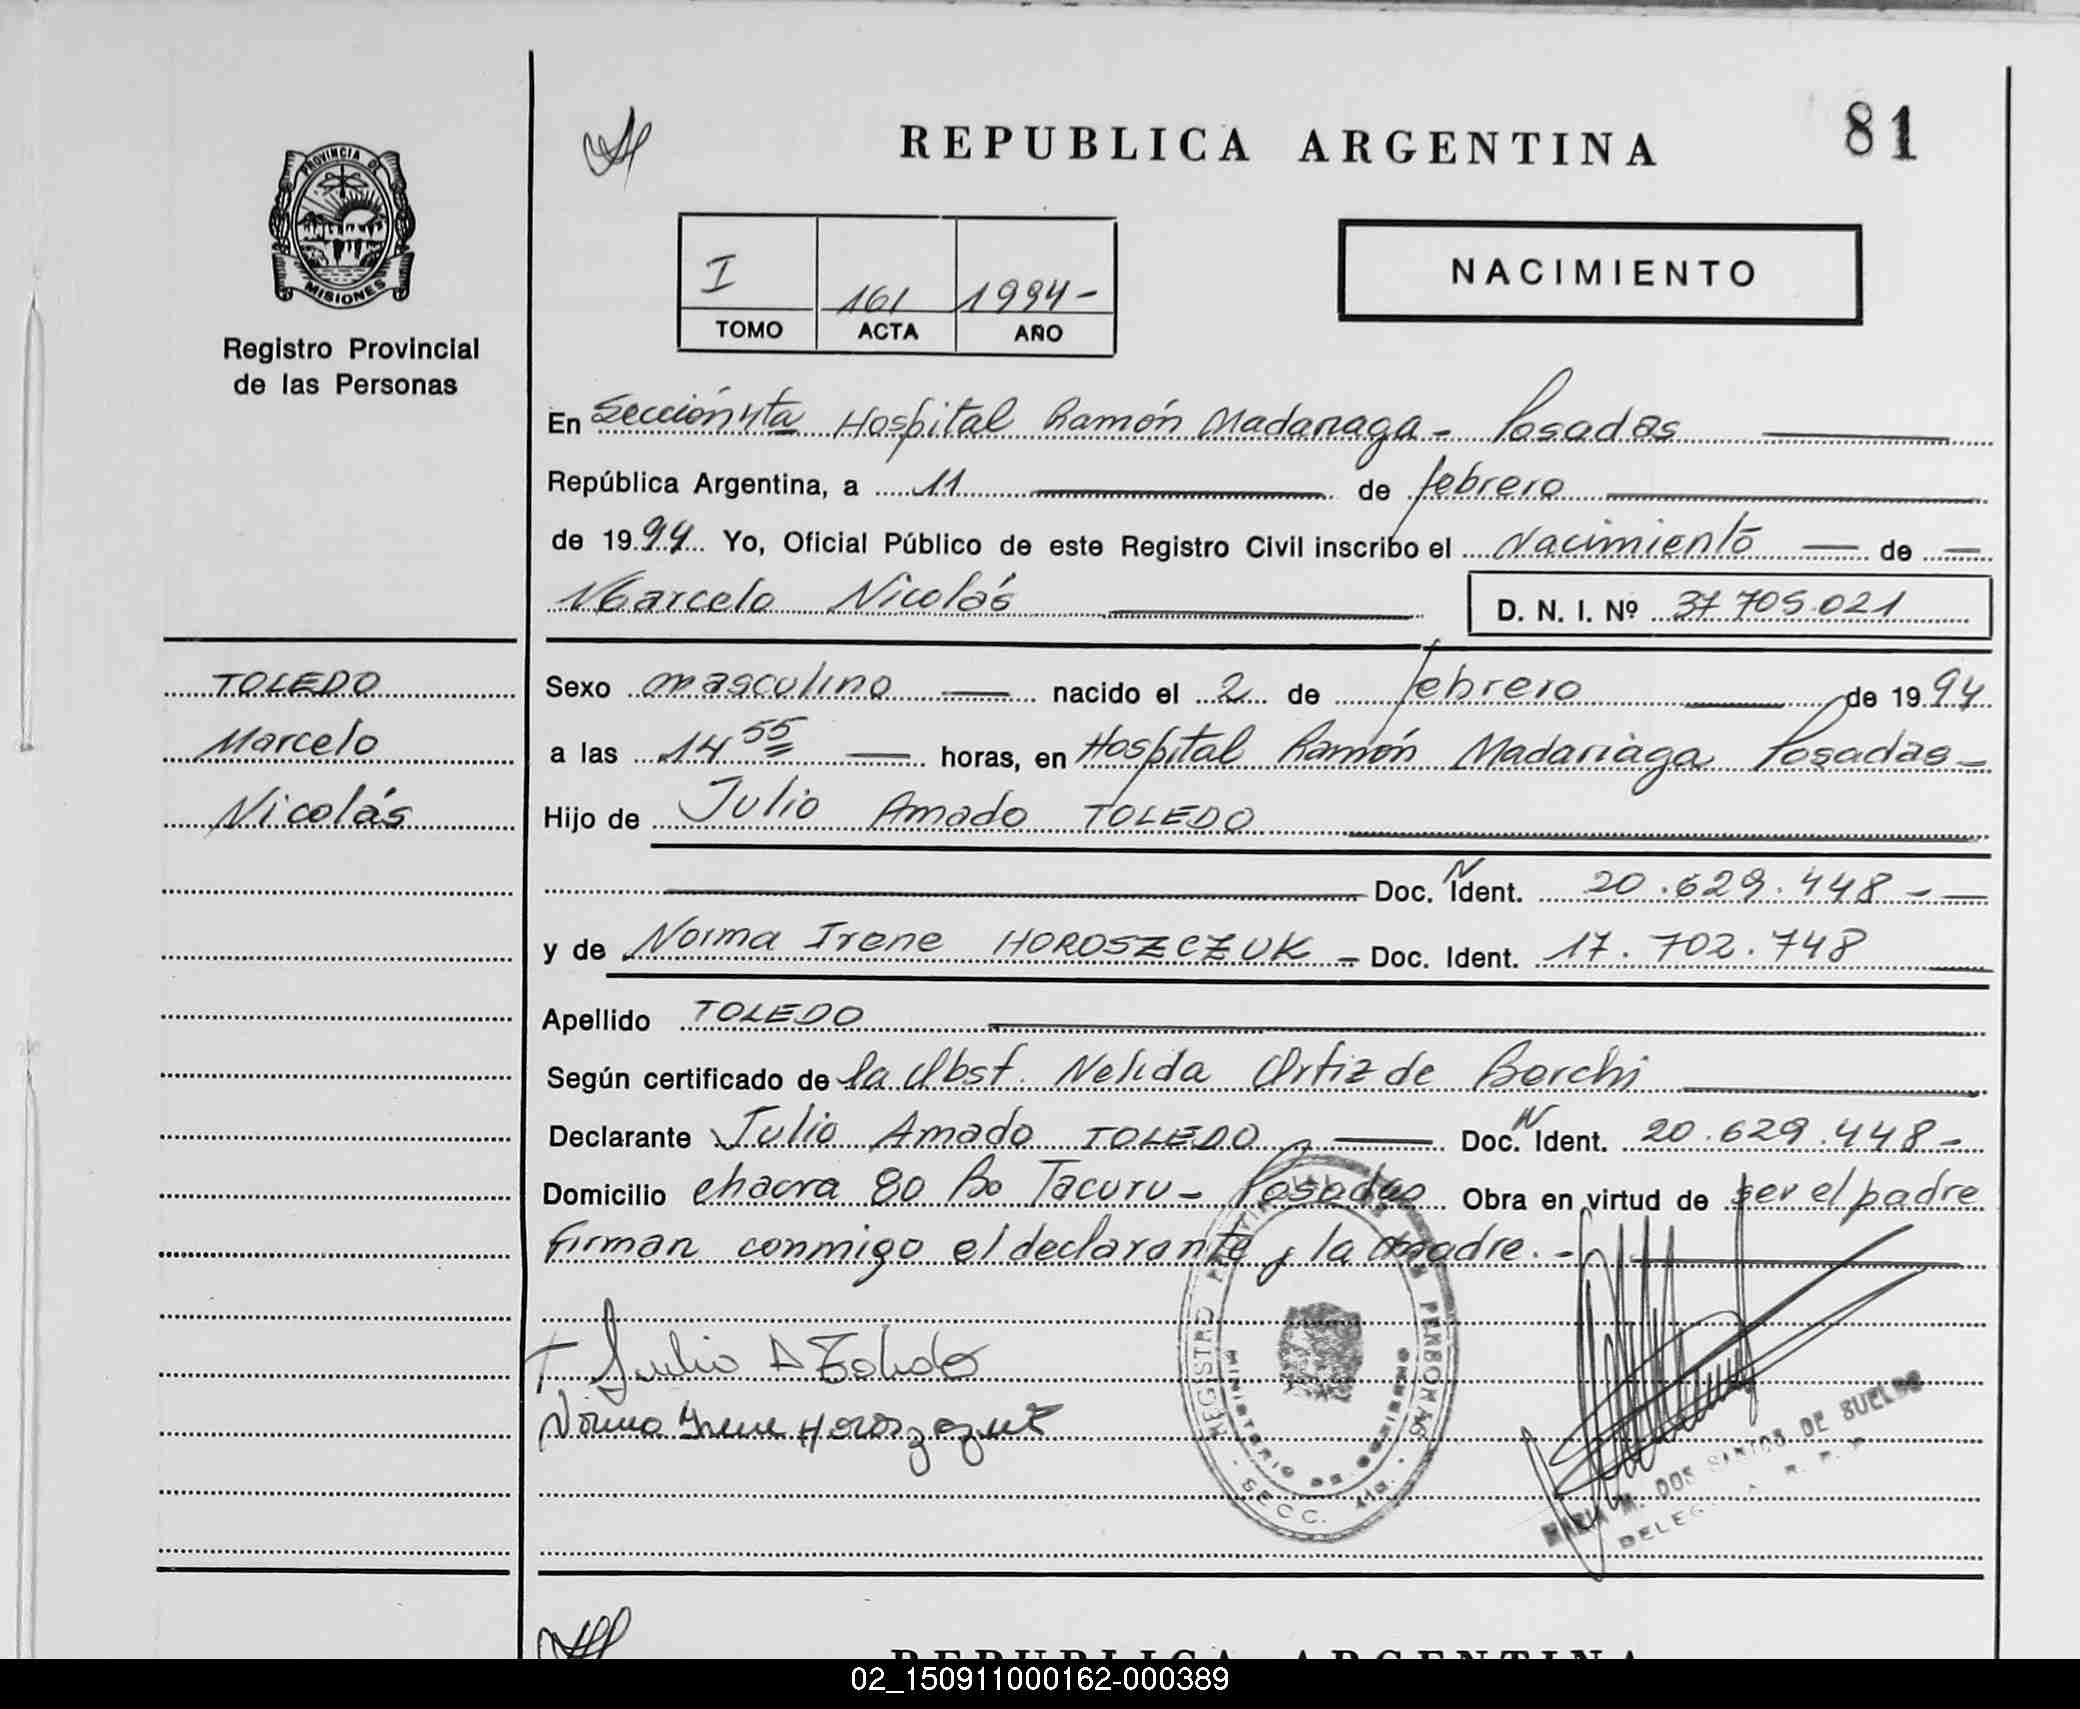 REPUBLICA ARGENTINA
81
PROVINCIA DE
MISIONES
Registro Provincial
de las Personas
I
161
1994-
TOMO
ACTA
AÑO
NACIMIENTO
En Sección 4ta Hospital Ramón Madariaga - Posadas
República Argentina, a 11 de febrero
de 1994 Yo, Oficial Público de este Registro Civil inscribo el Nacimiento de
Marcelo Nicolás
D. N. I. Nº 37 705.021
TOLEDO
Marcelo
Nicolás
Sexo masculino nacido el 2 de febrero de 1994
a las 14 55 horas, en Hospital Ramón Madariaga Posadas
Hijo de Julio Amado TOLEDO
Doc. N Ident. 20.629.448 -
y de Norma Irene HOROSZCZUK - Doc. Ident. 17.702.748
Apellido TOLEDO
Según certificado de la Obst. Nelida Ortiz de Borchi
Declarante Julio Amado TOLEDO Doc. N Ident. 20.629.448-
Domicilio chacra 80 Bo Tacuru - Posadas Obra en virtud de ser el padre
firman conmigo el declarante y la madre. -
Julio A Toledo
Norma Irene Horoszczuk
REGISTRO PERSONAS
MINISTERIO DE GOBIERNO
SECC.
MARIA M. DOS SANTOS DE SUELDO
REPUBLICA ARGENTINA
02_150911000162-000389